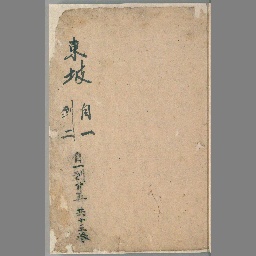 東坡
自一
到二
自一到廿五 共十三卷